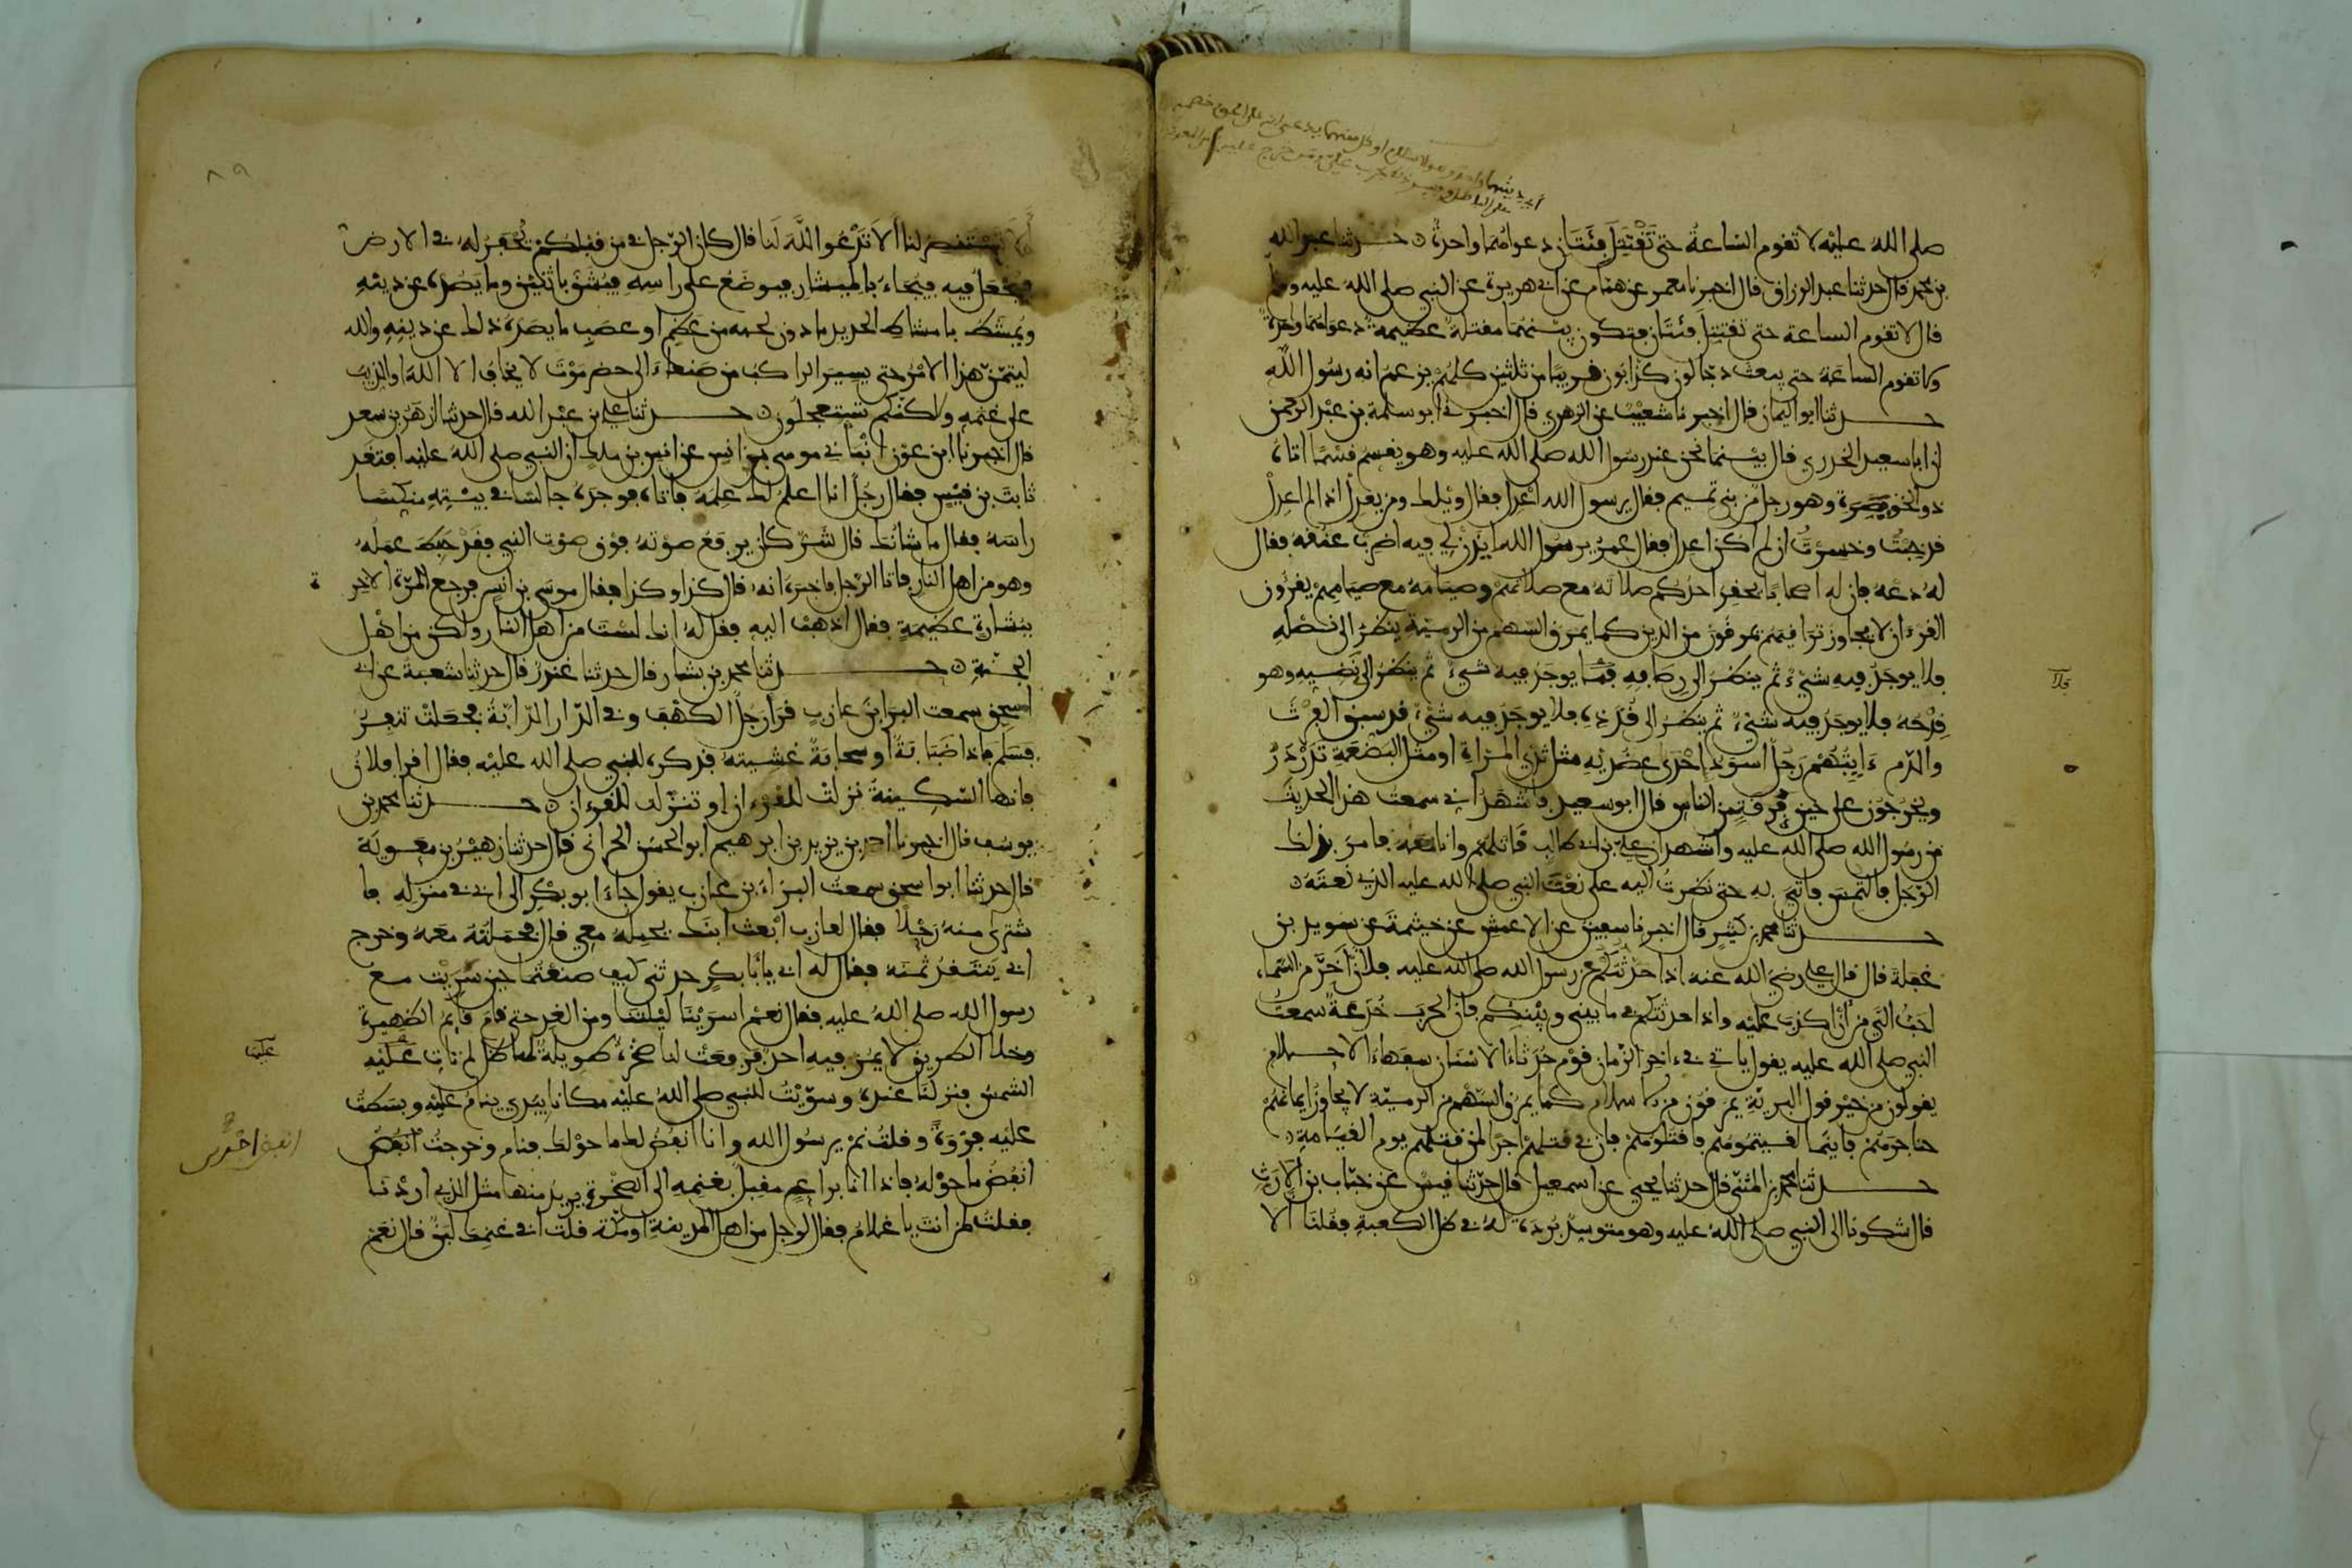 صلى اللهُ عليْه لا تقوم السّاعةُ حتى تَقْتَتِلَ فِئَتَانِ دعواهُمَا واحدةٌ ۞ حدثنا عبد الله
بن محمد قال حدثنا عبد الرزاق قال اخبرنا معمر عن همّام عن ابي هريرة عن النبي صلى الله عليه وسلم
قال لا تقوم الساعة حتى تقتتل فئتان فيكون بيْنَهُمَا مقتلةٌ عظيمة دعواهما واحدةٌ
ولا تقوم الساعَة حتى يبعث دجّالون كذّابون قريبًا من ثلثين كلّهُمْ يزعم انه رسُول اللهِ
حدثنا ابو اليمان قال اخبرنا شعيْبٌ عن الزهري قال اخبرني ابو سلمة بن عبْد الرحمن
ان ابا سعيد الخدري قال بيْنما نحن عند رسُول الله صلى الله عليه وهو يقسِم قسْمًا اتاه
ذو الخويصِرة وهو رجل من بني تميم فقال يرسول الله اعْدِل فقال ويْلك ومن يعدِلُ اذا لم اعدِلْ
قد خِبْتُ وخسِرْتُ ان لم اكن اعدل فقال عمر يرسُول الله ايْذن لي فيه اضرب عنقه فقال
لهُ دعْهُ فان له اصحابًا يحقِر احدُكم صلاتَهُ مع صلاتهمْ وصيَامهُ مع صيامِهمْ يقرءون
القرءان لا يجاوز تراقيَهم يمرقُون من الدين كما يمرق السّهم من الرميّة ينظرُ الى نصْلِهِ
فلا يوجَدُ فِيهِ شيْءٌ ثم ينظرُ الى رِصَافِهِ فما يوجَدُ فيه شيءٌ ثم ينظرُ الى نَضِيّه وهو
قِدْحُه فلا يوجَدُ فيه شيْءٌ ثم ينظر الى قُذَذِهِ فلا يوجَدُ فيه شيْءٌ قد سبق الفرْثَ
والدّم ءَايتُهُمْ رَجُلٌ اسوَد احْدَى عضُديْهِ مثل ثدْيِ المرْاةِ او مثل البَضْعَةِ تَدَرْدَرُ
ويخرجُون على حين فِرقةٍ من الناس قال ابو سعيد فاشْهَدُ اني سمعتُ هذا الحديثَ
من رسُول الله صلى الله عليه واشهد ان علي بن ابي طالب قاتلهُم وانا معَه فامرَ بذلك
الرّجل فالتُمسَ فاتيَ به حتى نظرتُ اليه على نَعْتِ النبي صلى الله عليه الذي نعتَهُ ۞
حدثنا محمد بن كثير قال اخبرنا سفين عن الاعمش عن خيثمة عن سويد بن
غفلة قال قال علي رضي الله عنه اذا حدّثتكم عن رسول الله صلى الله عليه فلأن أخِرّ من السّماء
احبّ اليّ من ان اكذب عليْه واذا حدثتكم فيما بيني وبيْنكم فان الحربَ خُدعةٌ سمعت
النبي صلى الله عليه يقول ياتي في ءاخر الزّمان قوْم حُدَثاءُ الاسْنَان سفهَاءُ الاحلام
يقولون من خيْر قول البريّة يمرقون من الاسلام كما يمرق السّهْم من الرميّة لا يجاوز ايمانهُمْ
حناجرَهُمْ فاينما لقيتمُوهُم فاقتلوهُمْ فان في قتلهمْ اجرًا لمن قتلهم يوم القيامةِ ۞
حدثنا محمد بن المثنّى قال حدثنا يحيى عن اسمعيل قال حدّثنا قيْسٌ عن خبّاب بن الارَتّ
قال شكونا الى النبي صلى اللهُ عليه وهو متوسِّدٌ بُردَةً لهُ في ظل الكعبةِ فقلنا الا
تستنصِرُ لنا الا تَدْعُو اللّهَ لَنا قال كان الرّجل في من قبْلكمْ يُحْفَرُ لهُ في الارض
فيُجْعَلُ فيه فيُجاءُ بالميشارِ فيوضعُ على راسِهِ فيُشَقّ باثنَيْن وما يَصُدّهُ عن دينِهِ
ويُمشَط بامشاط الحديد ما دون لحمه من عَظم او عصَب ما يصدّهُ ذلك عن دينِهِ والله
ليَتِمّنّ هذا الامْرُ حتى يسيرَ الراكبُ من صَنعاءَ الى حضرموْتَ لا يخافُ الا اللهَ او الذيبَ
على غنَمهِ ولاكنّكم تستعجلُون ۞ حدثنا علي بن عبْد الله قال حدثنا ازهَرُ بن سعد
قال اخبرنا ابن عوْن انبَاني موسى بن انس عن انس بن ملك ان النبي صلى الله عليه افتقد
ثابتَ بن قيْس فقال رجُلٌ انا اعلمُ لك عِلمَهُ فاتاهُ فوجدَهُ جالسًا في بيْتِهِ منكِّسًا
راسَهُ فقال ما شانُك قال شَرٌّ كان يرفعُ صوْتَهُ فوْق صوْت النبي فقَدْ حَبِطَ عمَلُه
وهو من اهل النار فاتا الرّجل فاخبرَهُ انهُ قال كذا وكذا فقال موسَى بن انس فرجع المرّة الاخرة
ببشارةٍ عظيمةٍ فقال اذهبْ اليهِ فقل لهُ انك لسْتَ من اهل النار ولكن من اهْل
الجنّةِ ۞ حدثنا محمد بن بشار قال حدثنا غندرٌ قال حدثنا شعبةُ عن ابي
اسحق سمعت البرَا بن عازب قرا رجُلٌ الكهْفَ وفي الدّار الدّابّةُ فجعَلتْ تنفِرُ
فسَلّم فاذا ضَبَابَةٌ او سحابةٌ غَشِيَتهُ فذكرهُ للنبي صلى الله عليْه فقال اقرا فلانُ
فانها السّكِينةُ نزلتْ للقرْءان او تنزّلت للقرءان ۞ حدثنا محمد بن
يوسُف قال اخبرنا احمد بن يزيد بن ابرهيم ابو الحسَن الحراني قال حدثنا زهيْرُ بن معوية
قال حدثنا ابو اسحق سمعتُ البرَاءَ بن عازب يقول جاءَ ابو بكْر الى ابي في منزلهِ فا
شترى منه رَحْلًا فقال لعازب ابعث ابنَك يحمله معي قال فحملتهُ معَه وخرج
ابي يَنتقدُ ثمنَه فقال له ابي يابَا بكرٍ حدثني كيف صنعْتُما حين سَرَيْت مع
رسول الله صلى اللهُ عليه فقال نعَمْ اسرَيْنا ليْلتنا ومن الغد حتى قام قايمُ الظهيرة
وخلا الطريق لا يمُرّ فيه احدٌ فرُفعَتْ لنا صخْرةٌ طويلةٌ لها ظل لم تاتِ عَليْهِ
الشمسُ فنزلنا عندهُ وسوّيْتُ للنبي صلى اللهُ عليْه مكانا بيَدِي ينامُ عليْهِ وبسَطتُ
عليْه فرْوَةً وقلتُ نمْ يرسُول الله وانا انفُضُ لك ما حوْلك فنام وخرجتُ انفُضُ
انفُضُ ما حوْلهُ فاذا انا براعٍ مقبِلٌ بغنمهِ الى الصّخْرة يريدُ منها مثل الذي اردْنا
فقلت لمن انتَ يا غلامُ فقال لرجل من اهل المدينة او مكّة قلت افي غنمك لبَنٌ قال نعَم